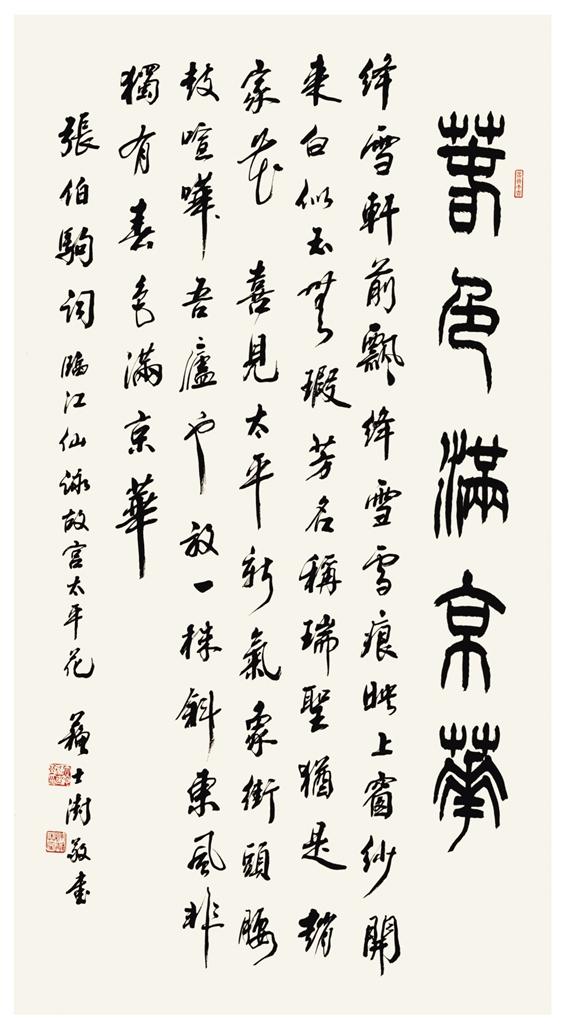 春色滿京華
絳雪軒前飄絳雪雪痕映上窗紗開
來白似玉無瑕芳名稱瑞聖猶是趙
家花 喜見太平新氣象街頭腰
鼓喧嘩吾廬也放一株斜東風非
獨有春色滿京華
張伯駒詞臨江仙詠故宮太平花 蘇士澍敬書